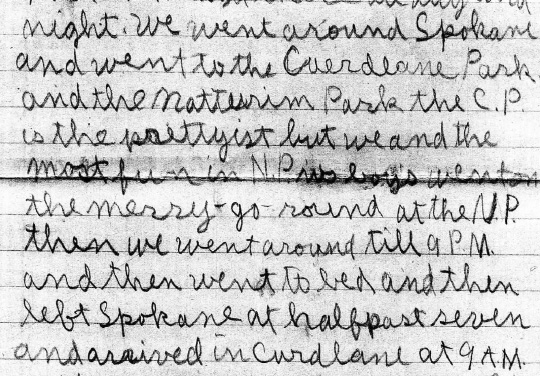 night. We went around Spokane
and went to the Cuerdleane Park.
and the Natteurim Park the C.P
is the prettyist but we and the
most fun in N.P we boys went on
the merry-go-round at the N.P.
then we went around till 9 P.M.
and then went to bed and then
left Spokane at half past seven
and arrived in Curdlane at 9 A.M.